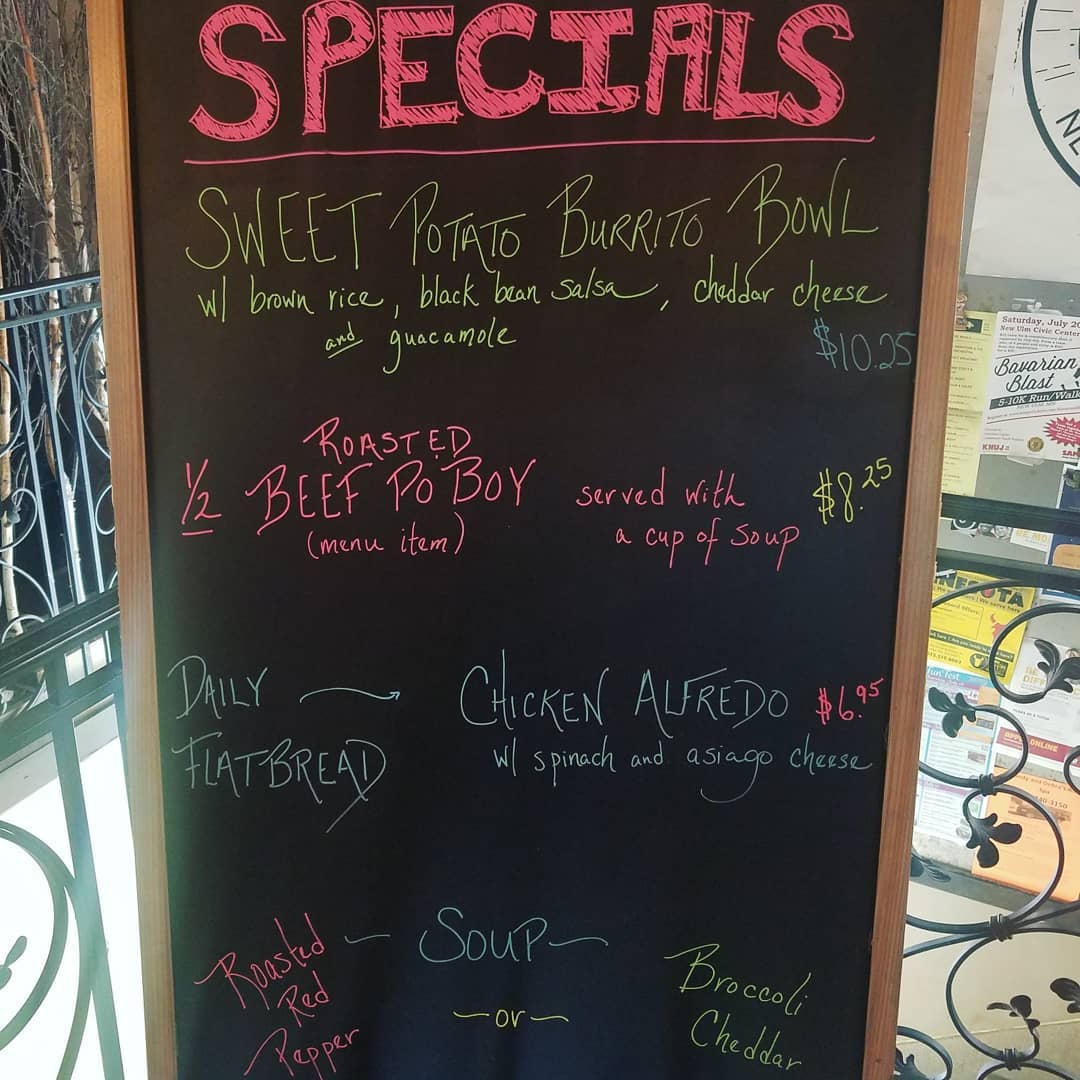 SPECIALS
SWEET POTATO BURRITO BOWL
w/ brown rice, black bean salsa, cheddar cheese
and guacamole
$10.25
ROASTED
1/2 BEEF PO BOY served with $8.25
(menu item) a cup of soup
DAILY → CHICKEN ALFREDO $6.95
FLATBREAD w/ spinach and asiago cheese
— SOUP —
Roasted
Red
Pepper
— or —
Broccoli
Cheddar
Saturday, July 20
New Ulm Civic Center
Bavarian
Blast
5-10K Run/Walk
KNUJ
NESOTA
ONLINE